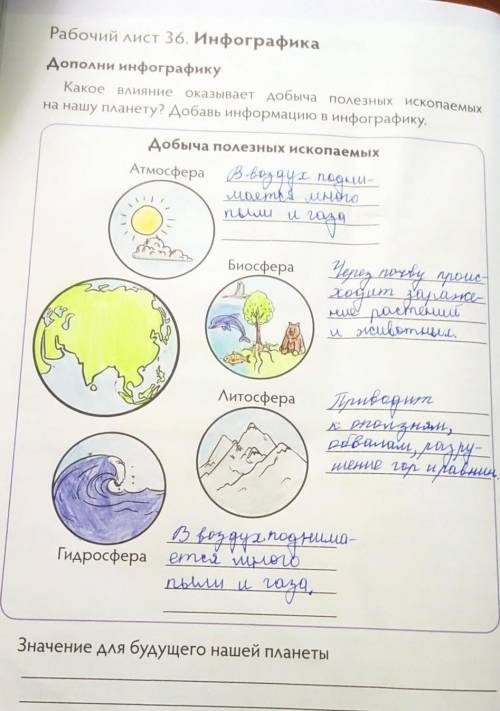 Рабочий лист 36. Инфографика
Дополни инфографику
Какое влияние оказывает добыча полезных ископаемых
на нашу планету? Добавь информацию в инфографику.
Добыча полезных ископаемых
Атмосфера
В воздух подни-
мается много
пыли и газа
Биосфера
Через почву проис-
ходит зараже-
ние растений
и животных.
Литосфера
Приводит
к оползням,
обвалам, разру-
шение гор и равнин.
Гидросфера
В воздух поднима-
ется много
пыли и газа.
Значение для будущего нашей планеты